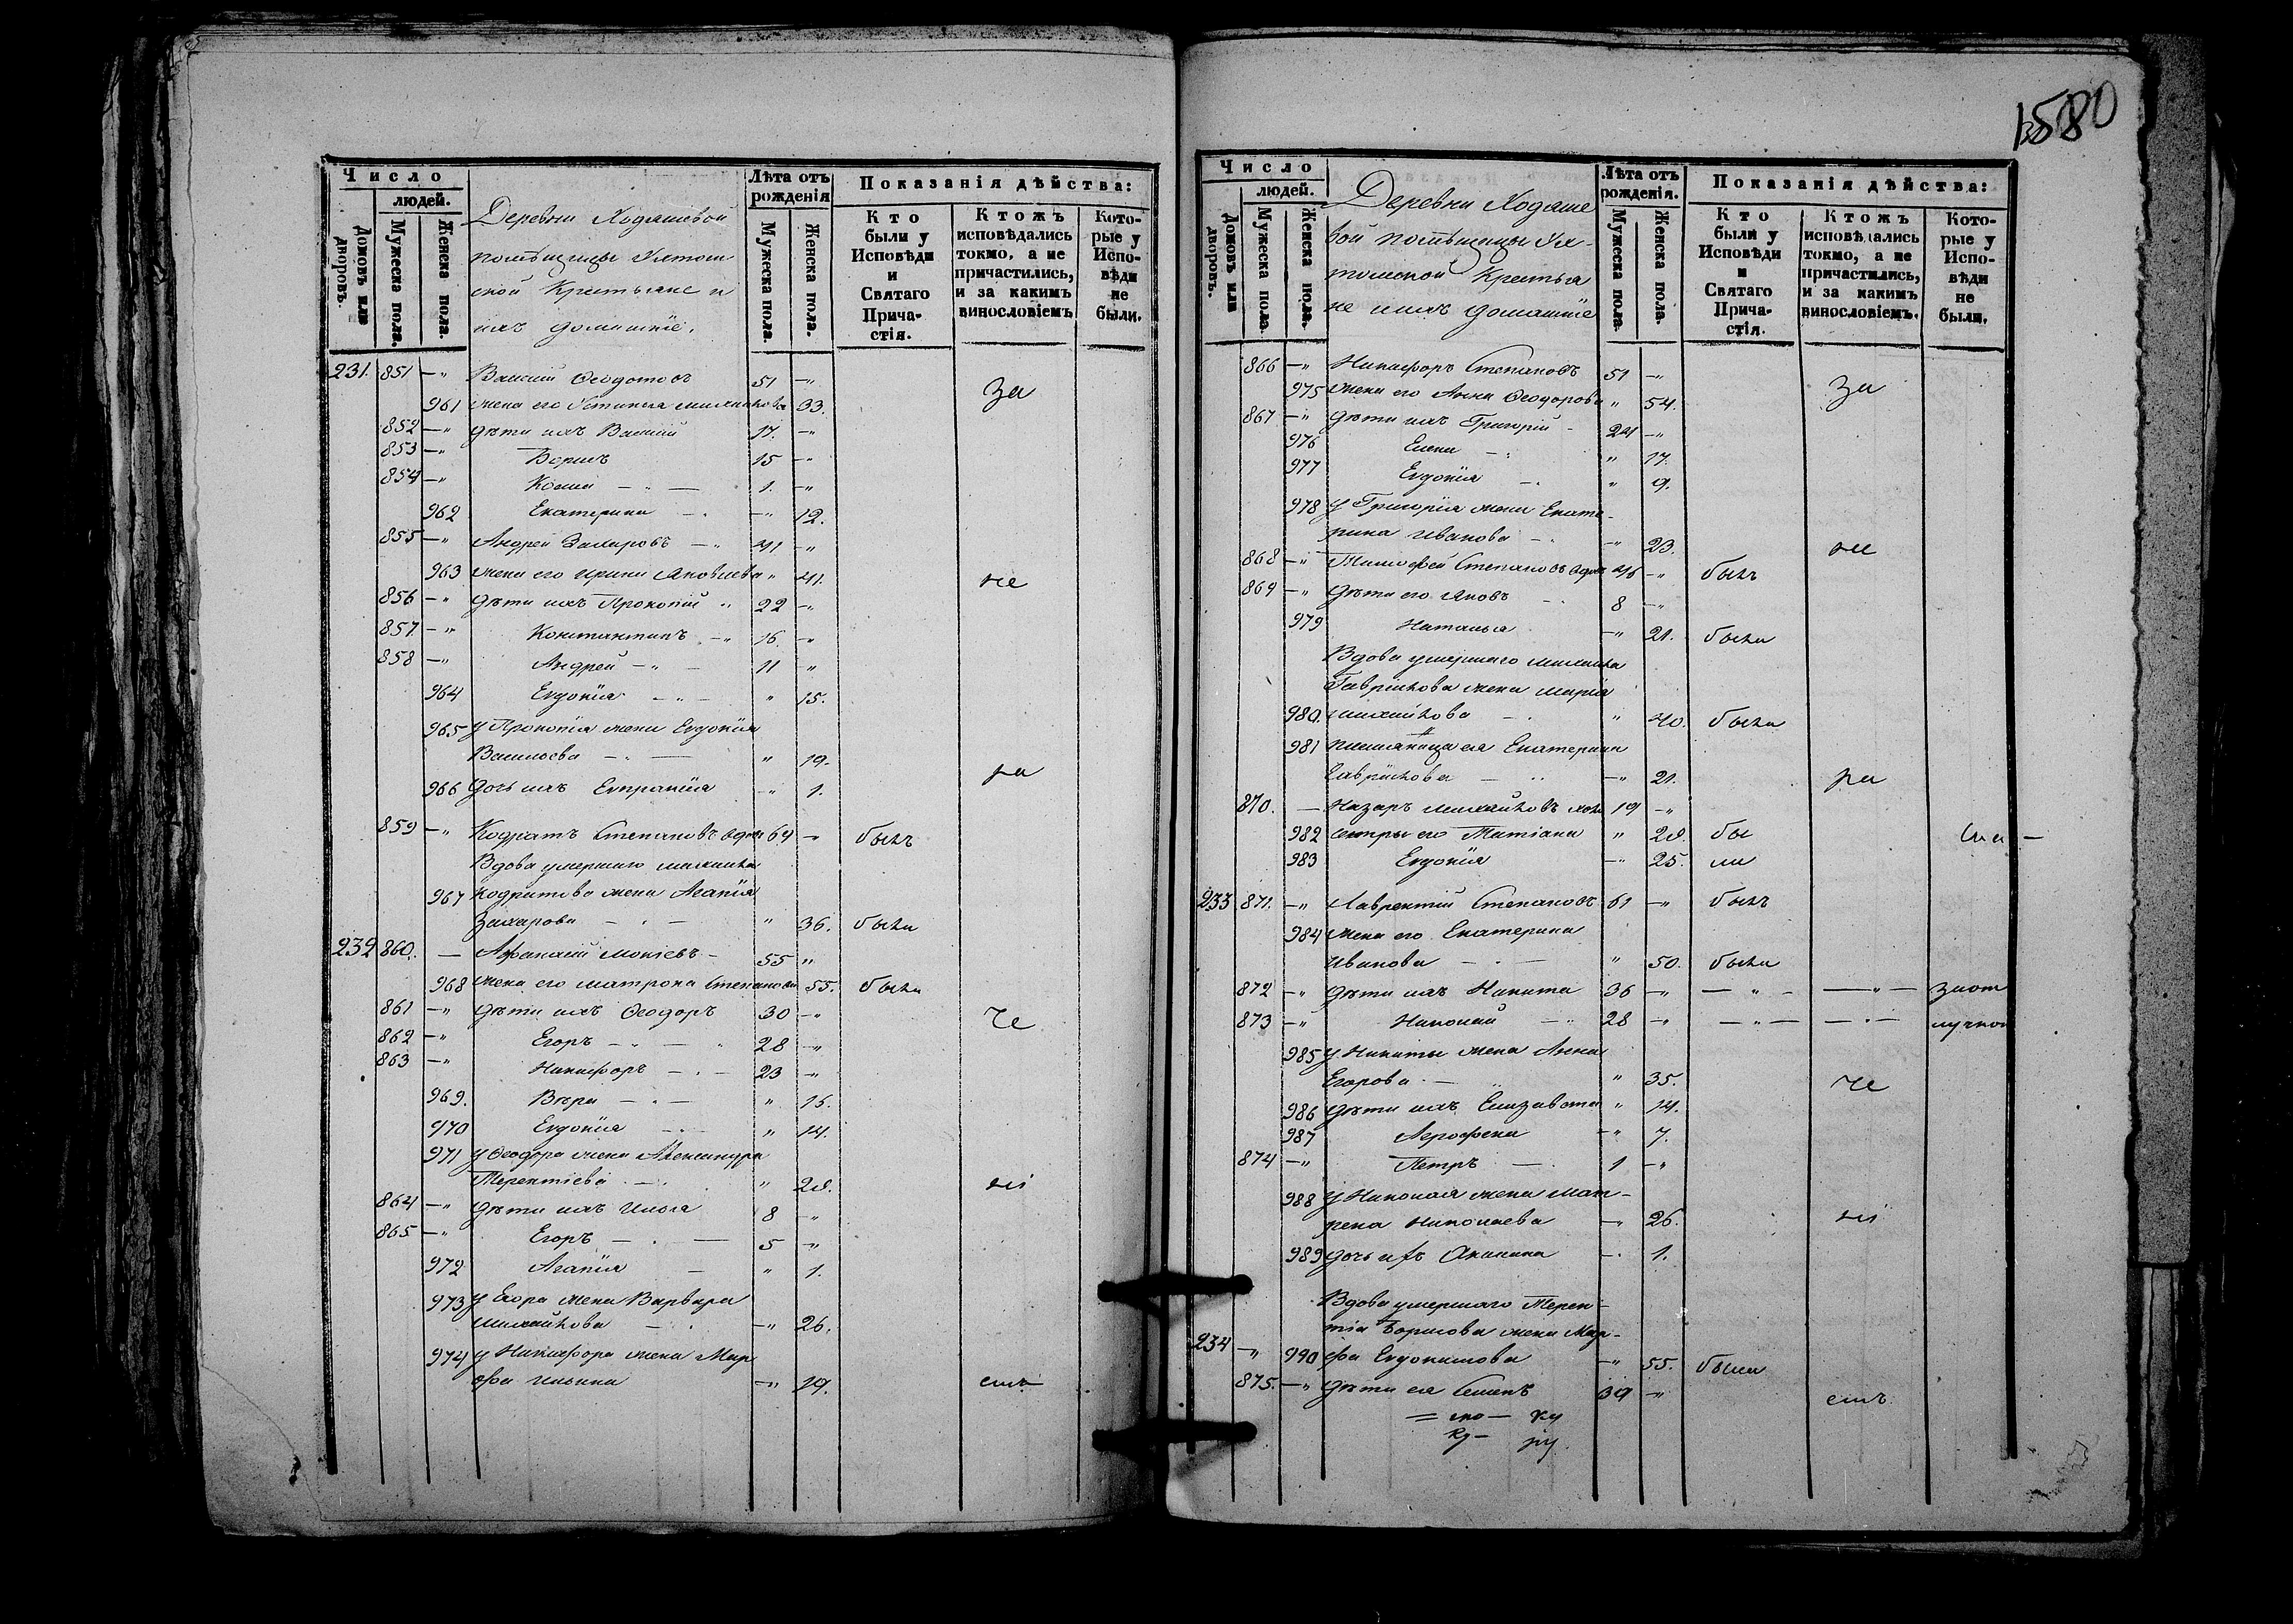 1580
Число
людей.
Домовъ или дворовъ.
Мужеска пола.
Женска пола.
Деревни Ходяшевой
помѣщицы Ухтом
ской Крестьяне и
ихъ домашніе.
Лѣта отъ рожденія
Мужеска пола.
Женска пола.
Показанія дѣйства:
Кто были у Исповѣди и Святаго Причастія.
Ктожъ исповѣдались токмо, а не причастились, и за какимъ винословіемъ
Которые у Исповѣди не были.
231. 851 —" Ѳеодотовъ 51 —" за
961 жена его Устинья Михайлова 33.
852 —" дѣти ихъ Василій 17. —"
853 —" Борисъ 15 —"
854 —" Козма — " — 1. —"
962 Екатерина — . —" 12.
855 —" Андрей Захаровъ — " 41 —"
963 жена его Ирина Яковлева " 41. не
856 —" дѣти ихъ Прокопій " 22 —"
857 —" Константинъ — " 16. —"
858 —" Андрей — " — 11 —"
964 Евдокія — " — " 15.
965 у Прокопія жена Евдокія
Васильева — " — " 19.
966 дочь ихъ Евпраксія —" 1. ра
859 —" Кодратъ Степановъ вдов 64 — былъ
Вдова умершаго Михаила
967 Кодратова жена Агапія
Захарова — " — " 36. была
232 860. — Афанасій Мокіевъ — 55 "
968 жена его Матрона Степанова 55. была
861 —" дѣти ихъ Ѳеодоръ 30 —" че
862 —" Егоръ — " — " 28 —"
863 —" Никифоръ — . — 23 —"
969. Вѣра — . — " 15.
970 Евдокія — . — " 14.
971 у Ѳеодора жена Александра
Терентіева — . " 28. ні
864 —" дѣти ихъ Илья 8 —"
865 —" Егоръ — . — 5 —"
972 Агапія — " 1.
973 у Егора жена Варвара
Михайлова — . —" 26.
974 у Никифора жена Мар
фа Ильина —" 19. емъ
Число
людей.
Домовъ или дворовъ.
Мужеска пола.
Женска пола.
Деревни Ходяше
вой помѣщицы Ух-
томской Крестья
не и ихъ домашніе
Лѣта отъ рожденія.
Мужеска пола.
Женска пола.
Показанія дѣйства:
Кто были у Исповѣди и Святаго Причастія.
Ктожъ исповѣдались токмо, а не причастились, и за какимъ винословіемъ.
Которые у Исповѣди не были.
866 —" Никифоръ Степановъ 51 —" за
975 жена его Анна Ѳеодорова " 54.
867 —" дѣти ихъ Григорій - 24 —"
976 Елена — . " 17.
977 Евдокія — . " 9.
978 у Григорія жена Екате-
рина Иванова — . —" 23. не
868 —" Тимофей Степановъ вдов 46 —" былъ
869 —" дѣти его Яковъ — . 8 —"
979 Наталья —" 21. была
Вдова умершаго Михаила
Гаврилова жена Марія
980. Михайлова — . " 40. была
981 племяница ея Екатерина
Гаврилова — .. —" 21. ра
870. — Назаръ Михайловъ 19 —"
982 сестры его Татіана " 28. бы
983 Евдокія —" 25. ли
233 871. —" Лаврентій Степановъ 61 —" былъ
984 жена его Екатерина
Иванова — " — " 50. была
872 —" дѣти ихъ Никита 36 —" — " — — " —
873 —" Николай — " 28 —" — " — — " —
985 у Никиты жена Анна
Егорова — " 35. че
986 дѣти ихъ Елизавета " 14.
987 Агрофена —" 7.
874 —" Петръ — . 1 —"
988 у Николая жена Мат-
рена Николаева —" 26. ні
989 дочь ихъ Акилина — . 1.
Вдова умершаго Терен-
тія Борисова жена Мар-
234 —" 990 фа Евдокимова —" 55. была
875. —" дѣти ея Семенъ 39 —" емъ